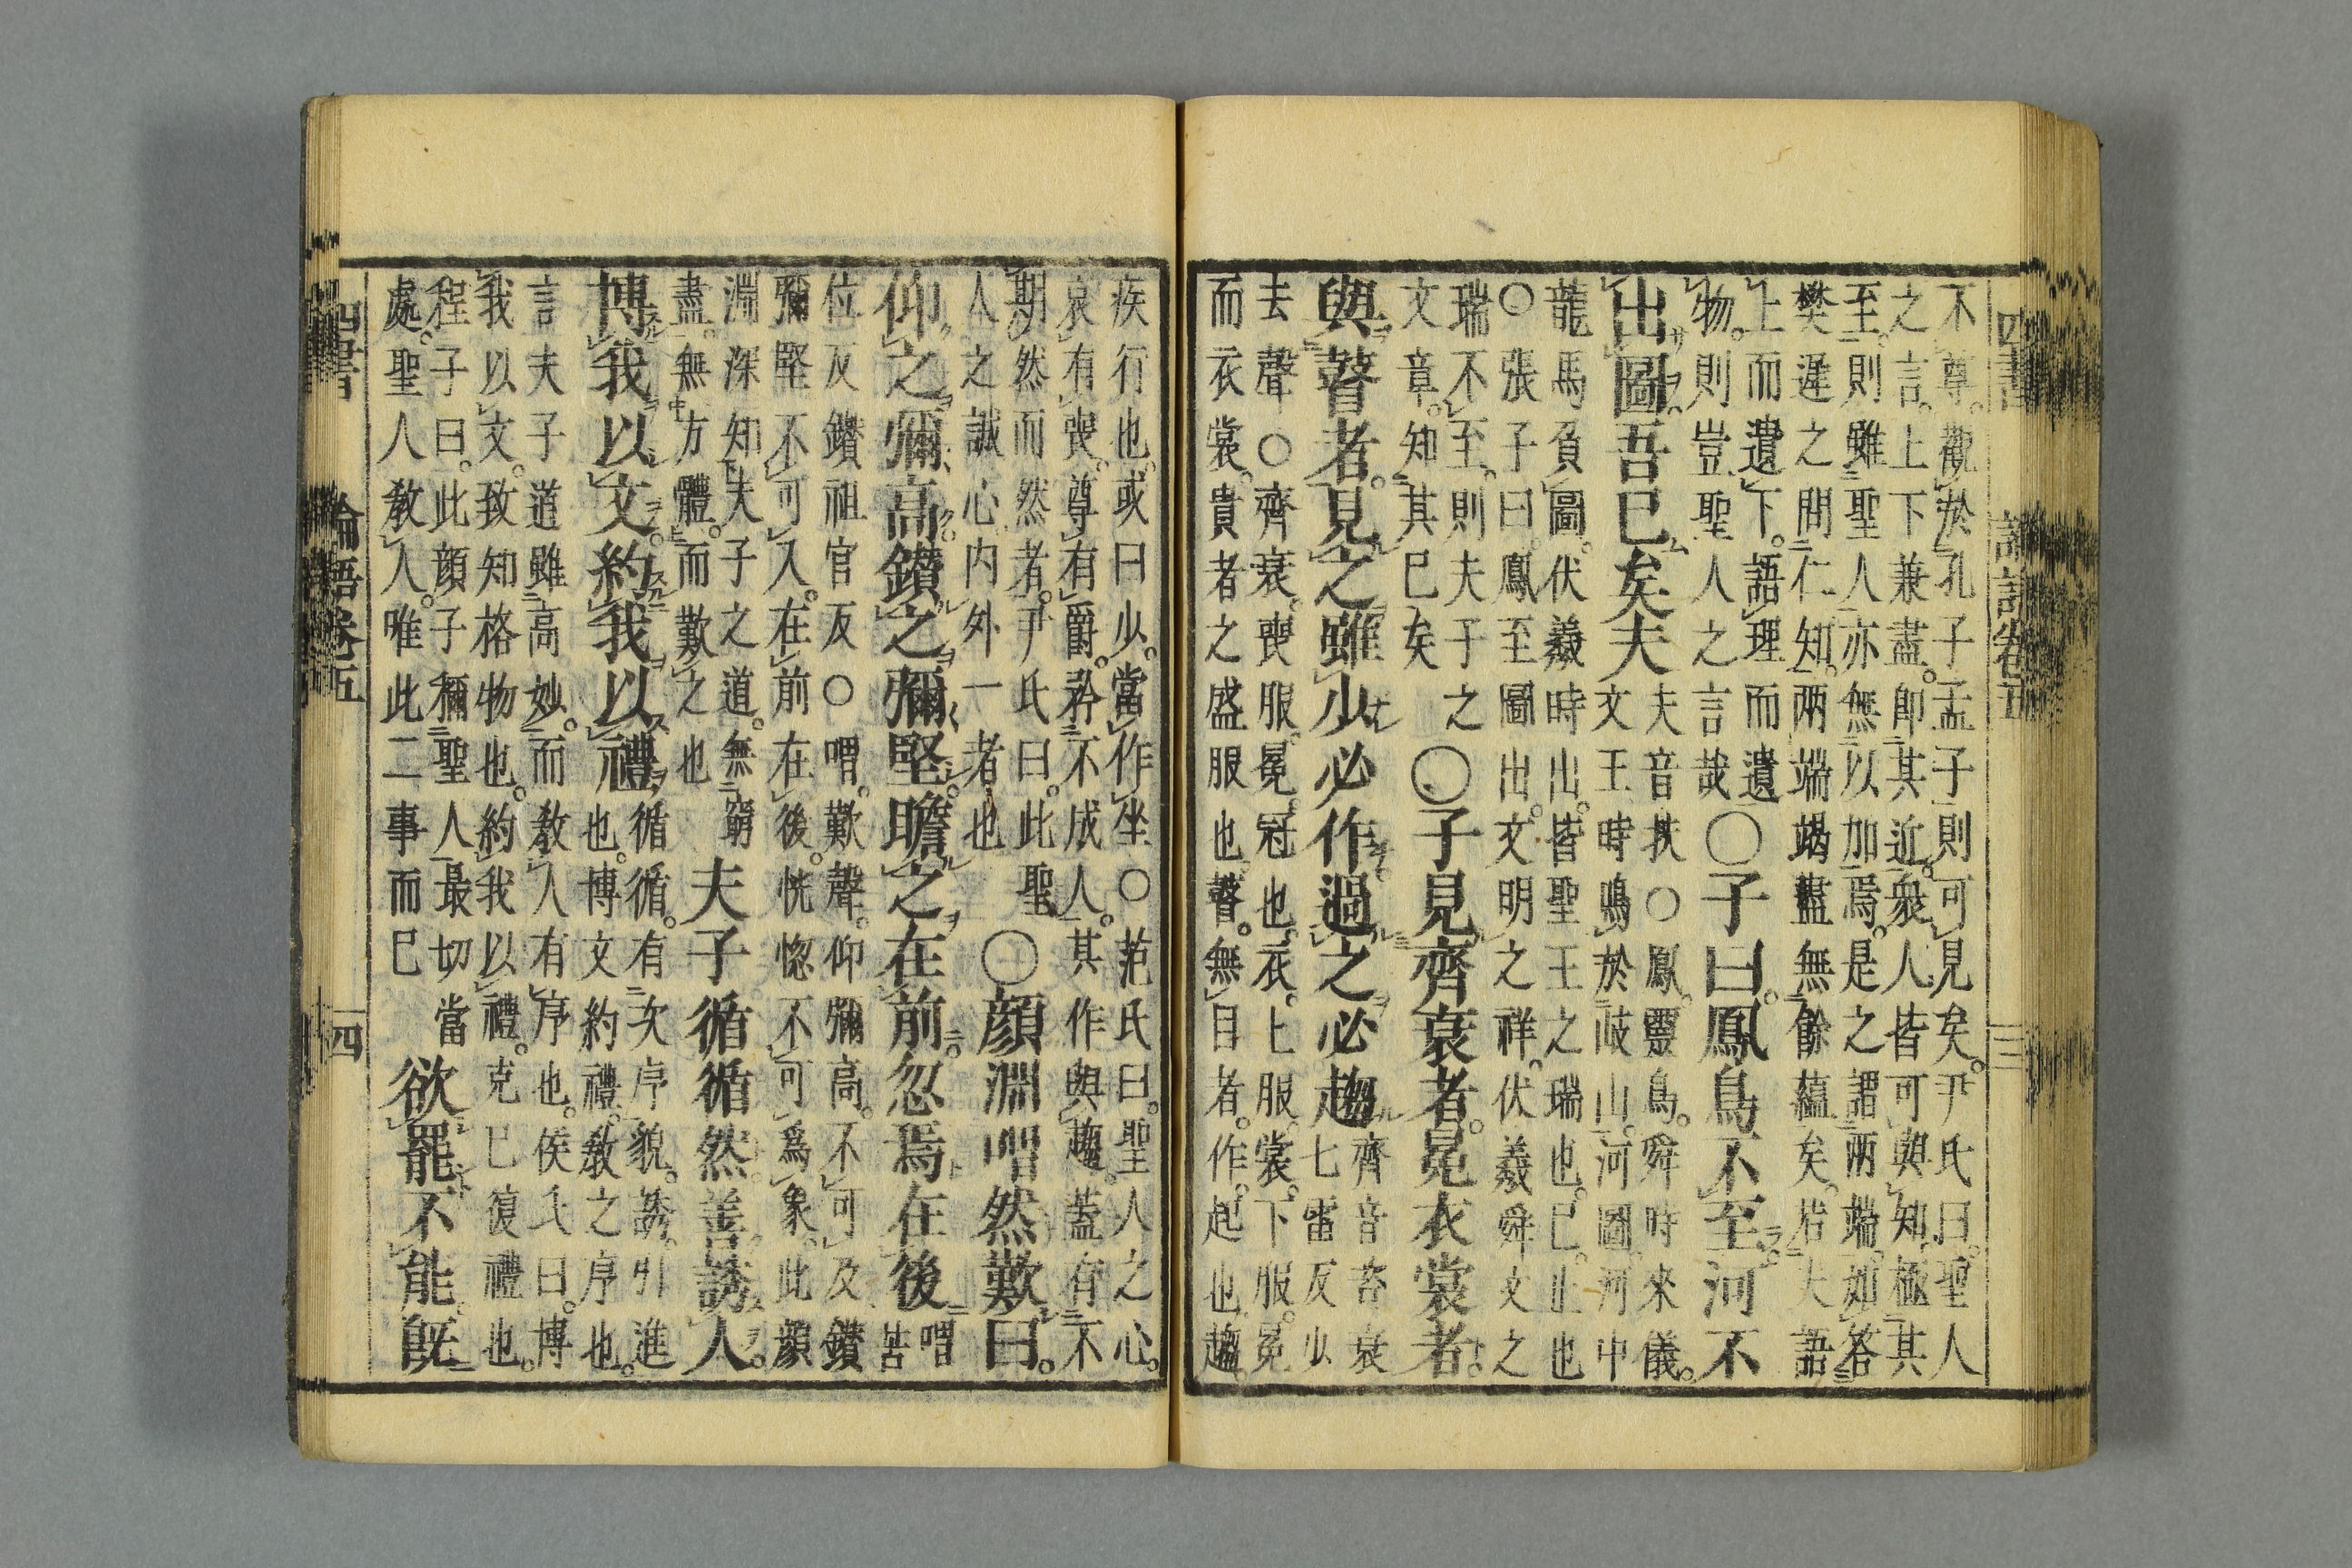 四書 論語卷五 三
不尊。觀於孔子孟子則可見矣。尹氏曰。聖人
之言。上下兼盡。卽其近。衆人皆可與知。極其
至。則雖聖人亦無以加焉。是之謂兩端。如答
樊遲之問仁知。兩端竭盡無餘蘊矣。若夫語
上而遺下。語理而遺
物。則豈聖人之言哉
○子曰。鳳鳥不至。河不
出圖。吾已矣夫
夫音扶○鳳。靈鳥。舜時來儀。
文王時鳴於岐山。河圖。河中
龍馬負圖。伏羲時出。皆聖王之瑞也。已。止也
○張子曰。鳳至圖出。文明之祥。伏羲舜文之
瑞不至。則夫子之
文章。知其已矣
○子見齊衰者。冕衣裳者。
與瞽者。見之雖少必作。過之必趨
齊音咨衰
七雷反少
去聲○齊衰。喪服。冕。冠也。衣。上服。裳。下服。冕
而衣裳。貴者之盛服也。瞽。無目者。作。起也。趨。
疾行也。或曰少。當作坐○范氏曰。聖人之心。
哀有喪。尊有爵。矜不成人。其作與趨。蓋有不
期然而然者。尹氏曰。此聖
人之誠心內外一者也
○顏淵喟然歎曰。
仰之彌高。鑽之彌堅。瞻之在前。忽焉在後
喟
苦
位反鑽祖官反○喟。歎聲。仰彌高。不可及。鑽
彌堅不可入。在前在後。恍惚不可爲象。此顏
淵深知夫子之道。無窮
盡。無方體。而歎之也
夫子循循然善誘人。
博我以文。約我以禮
循循。有次序貌。誘。引進
也。博文約禮。教之序也。
言夫子道雖高妙。而教人有序也。侯氏曰。博
我以文。致知格物也。約我以禮。克己復禮也。
程子曰。此顏子稱聖人最切當
處。聖人教人。唯此二事而已
欲罷不能。既
四書 論語卷五 四